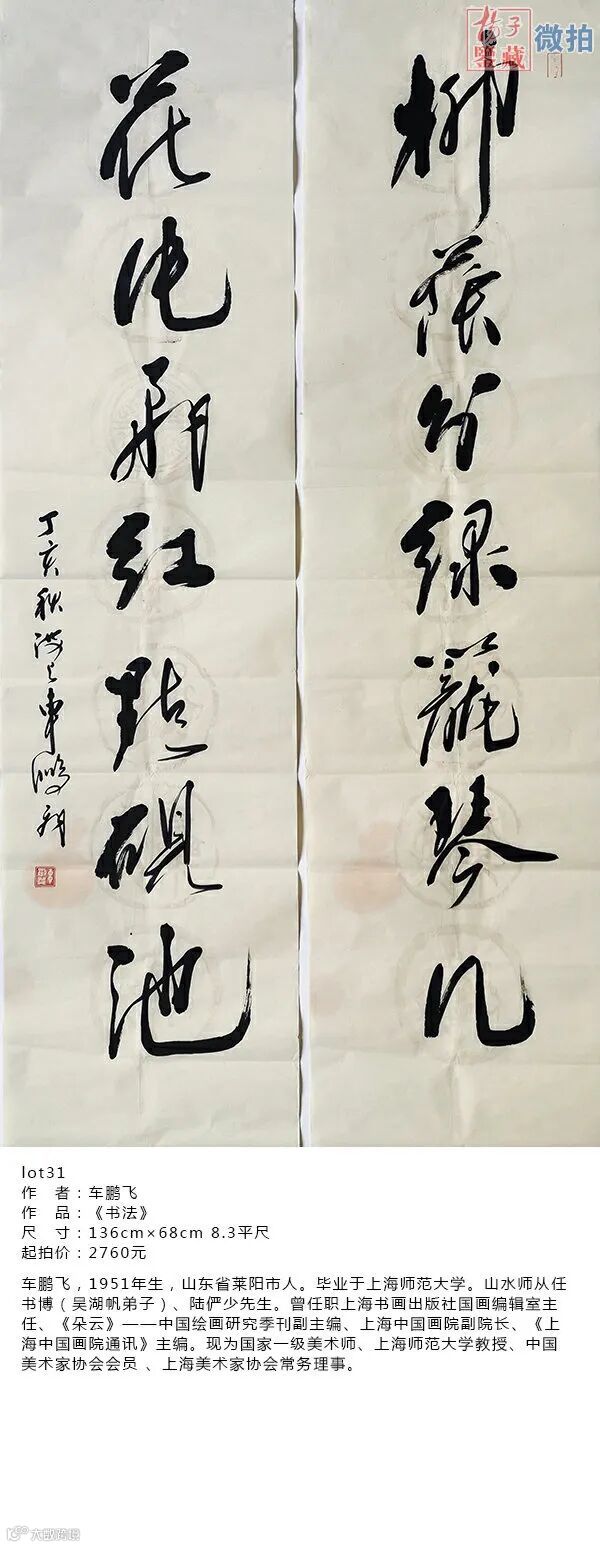 柳蔭分綠籠琴几
花 紅點硯池
丁亥秋滬上車鵬飛
楊子
鑒藏
微拍
lot31
作 者：车鹏飞
作 品：《书法》
尺 寸：136cm×68cm 8.3平尺
起拍价：2760元
车鹏飞，1951年生，山东省莱阳市人。毕业于上海师范大学。山水师从任
书博（吴湖帆弟子）、陆俨少先生。曾任职上海书画出版社国画编辑室主
任、《朵云》——中国绘画研究季刊副主编、上海中国画院副院长、《上
海中国画院通讯》主编。现为国家一级美术师、上海师范大学教授、中国
美术家协会会员 、上海美术家协会常务理事。
大歌跨境